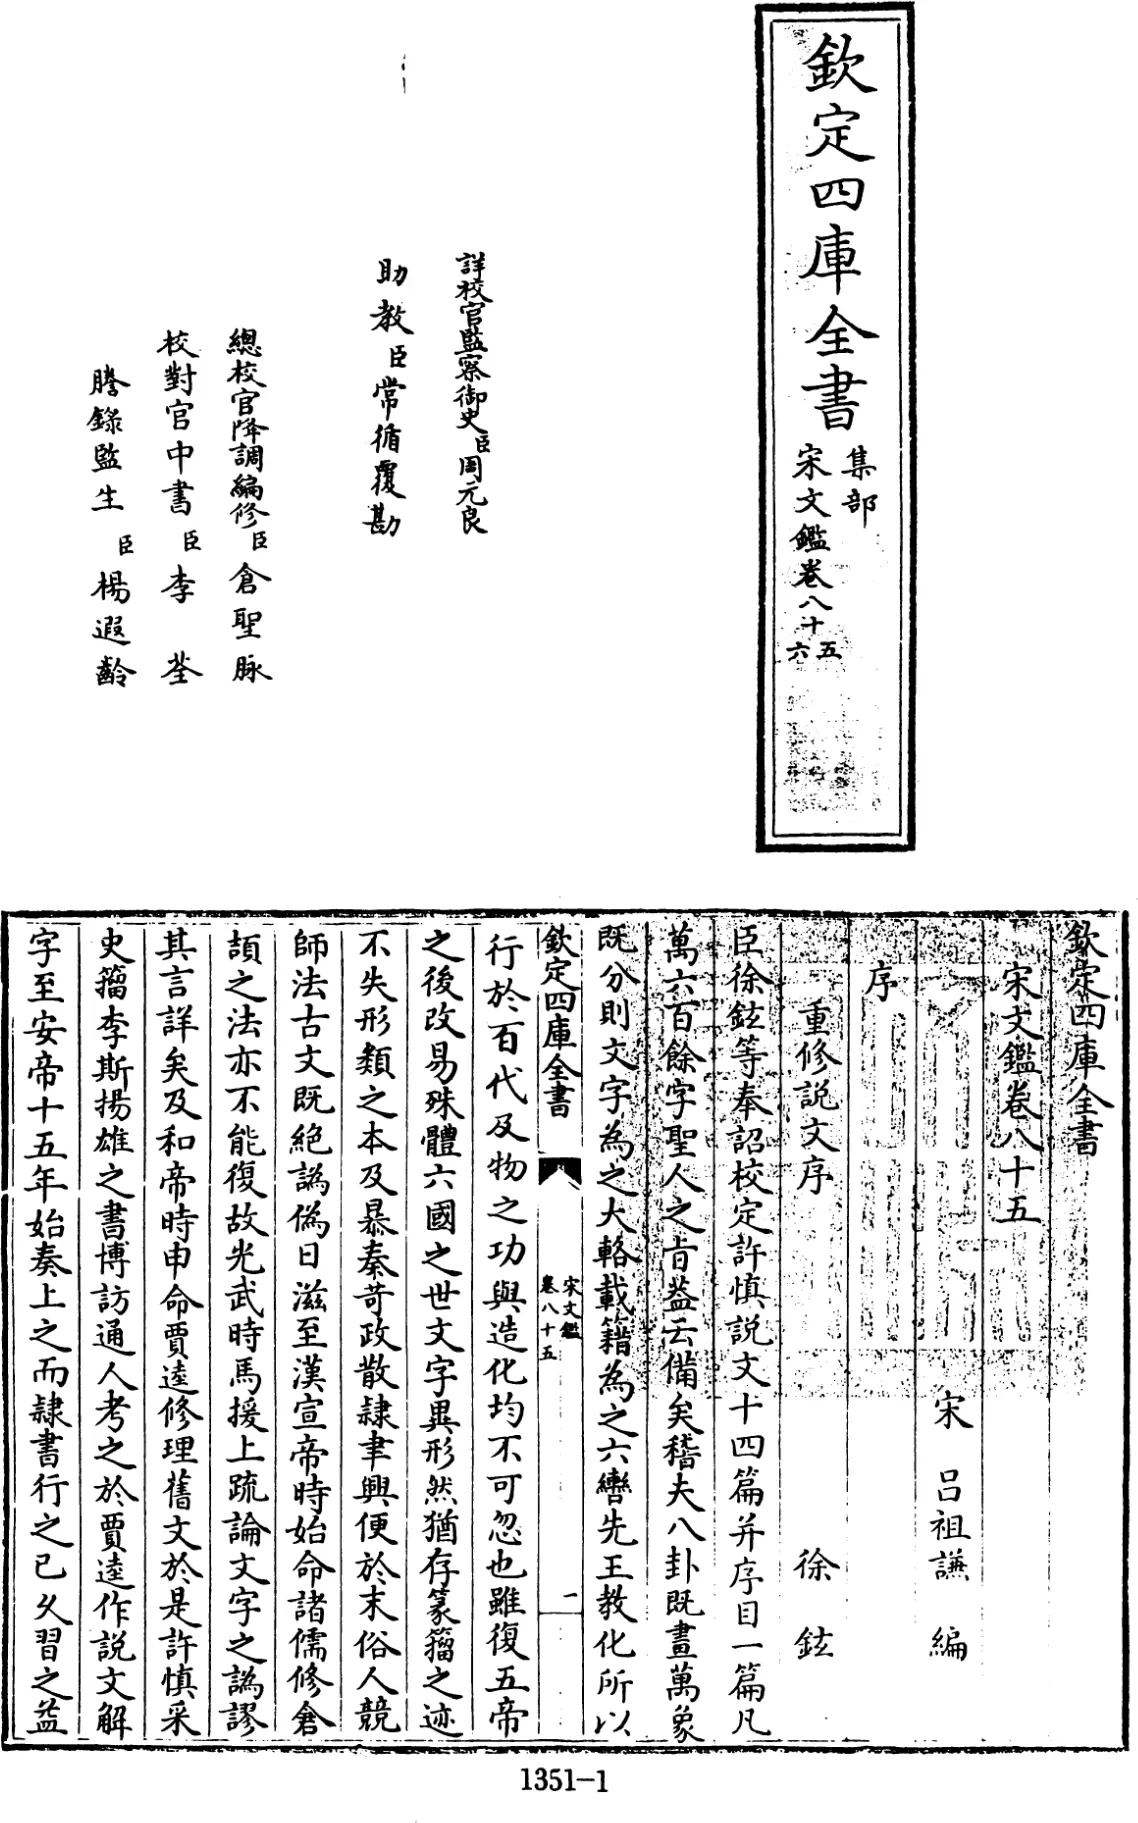 欽定四庫全書
集部
宋文鑑卷八十五
六
詳校官監察御史臣周元良
助教臣常循覆勘
總校官降調編修臣倉聖脉
校對官中書臣李荃
謄錄監生臣楊遐齡
欽定四庫全書
宋文鑑卷八十五
宋 呂祖謙 編
序
重修説文序 徐鉉
臣徐鉉等奉詔校定許慎説文十四篇并序目一篇凡
萬六百餘字聖人之㫖葢云備矣稽夫八卦既畫萬象
既分則文字為之大輅載籍為之六轡先王教化所以
欽定四庫全書
宋文鑑
卷八十五
一
行於百代及物之功與造化均不可忽也雖復五帝
之後改易殊體六國之世文字異形然猶存篆籀之迹
不失形類之本及暴秦苛政散隷聿興便於末俗人競
師法古文既絶譌偽日滋至漢宣帝時始命諸儒修倉
頡之法亦不能復故光武時馬援上疏論文字之譌謬
其言詳矣及和帝時申命賈逵修理舊文於是許慎采
史籀李斯揚雄之書博訪通人考之於賈逵作説文解
字至安帝十五年始奏上之而隷書行之已久習之益
1351-1